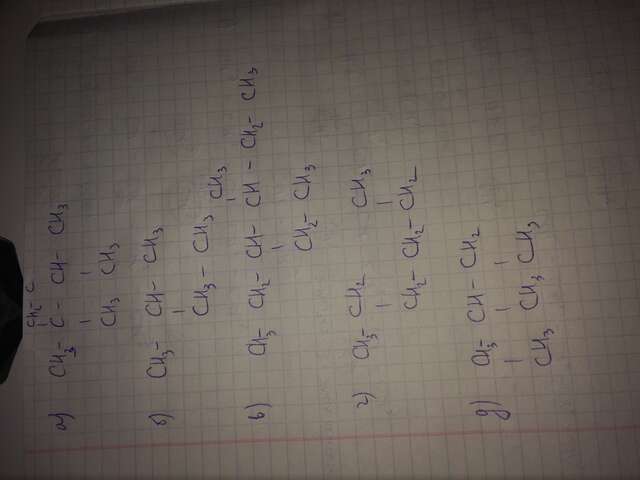 CH₂-C
а) CH₃-C-CH-CH₃
CH₃ CH₃
б) CH₃-CH-CH₃
CH₃-CH₃
CH₃
в) CH₃-CH₂-CH-CH-CH₂-CH₃
CH₂-CH₃
г) CH₃-CH₂ CH₃
CH₂-CH₂-CH₂
д) CH₃-CH-CH₂
CH₃ CH₃ CH₃